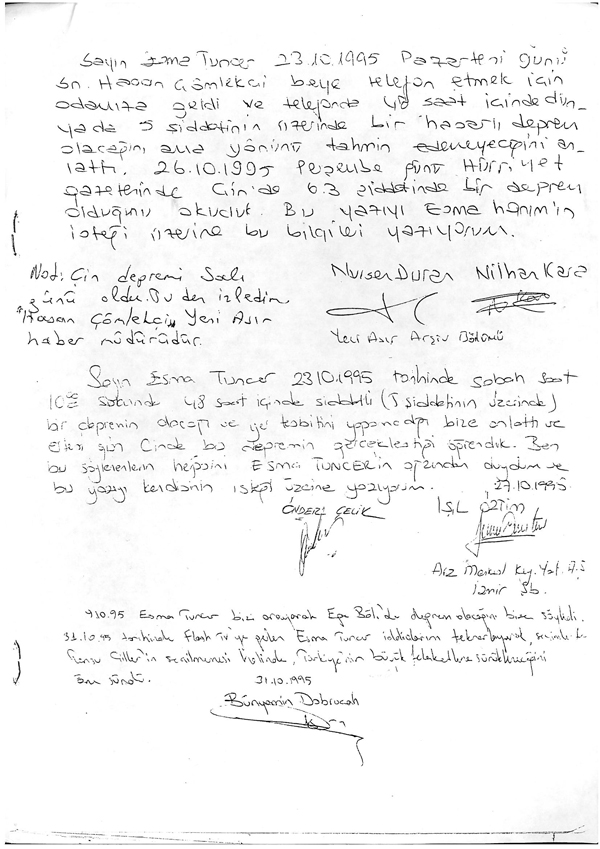 Sayın Esma Tuncer 23.10.1995 Pazartesi günü
Sn. Hasan Çömlekci beye telefon etmek için
odamıza geldi ve telefonda 48 saat içinde dün-
yada 5 şiddetinin üzerinde bir hasarlı deprem
olacağını ama yönünü tahmin edemeyeceğini an-
lattı. 26.10.1995 Perşembe günü Hürriyet
gazetesinde Çin'de 6.3 şiddetinde bir deprem
olduğunu okuduk. Bu yazıyı Esma hanım'ın
isteği üzerine bu bilgileri yazıyorum.
Not: Çin depremi Salı
günü oldu. Bu den izledim
*Hasan Çömlekci, Yeni Asır
haber müdürüdür.
Nursen Duran Nilhan Kara
Yeni Asır Arşiv Bölümü
Sayın Esma Tuncer 23.10.1995 tarihinde sabah saat
10 48 saat içinde şiddetli (5 şiddetinin üzerinde)
bir depremin olacağı ve yer tesbitini yapamadığı bize anlattı ve
ertesi gün Çinde bu depremin gerçekleştiği öğrendik. Ben
bu söylenenlerin hepsini Esma TUNCER'in ağzından duydum ve
bu yazıyı kendisinin isteği üzerine yazıyorum. 27.10.1995
ÖNDER ÇELİK
IŞIL
Menkul Kıy. Yat. A.Ş
İzmir Şb.
Esma Tuncer bizi arayarak Ege Böl.'de deprem olacağını bize söyledi.
31.10.95 tarihinde Flash Tv'ye gelen Esma Tuncer iddialarını tekrarlayarak,
Çiller'in seçilmemesi halinde, Türkiye'nin büyük felaketlere sürükleneceğini
öne sürdü.
31.10.1995
Bünyamin Dobrucalı